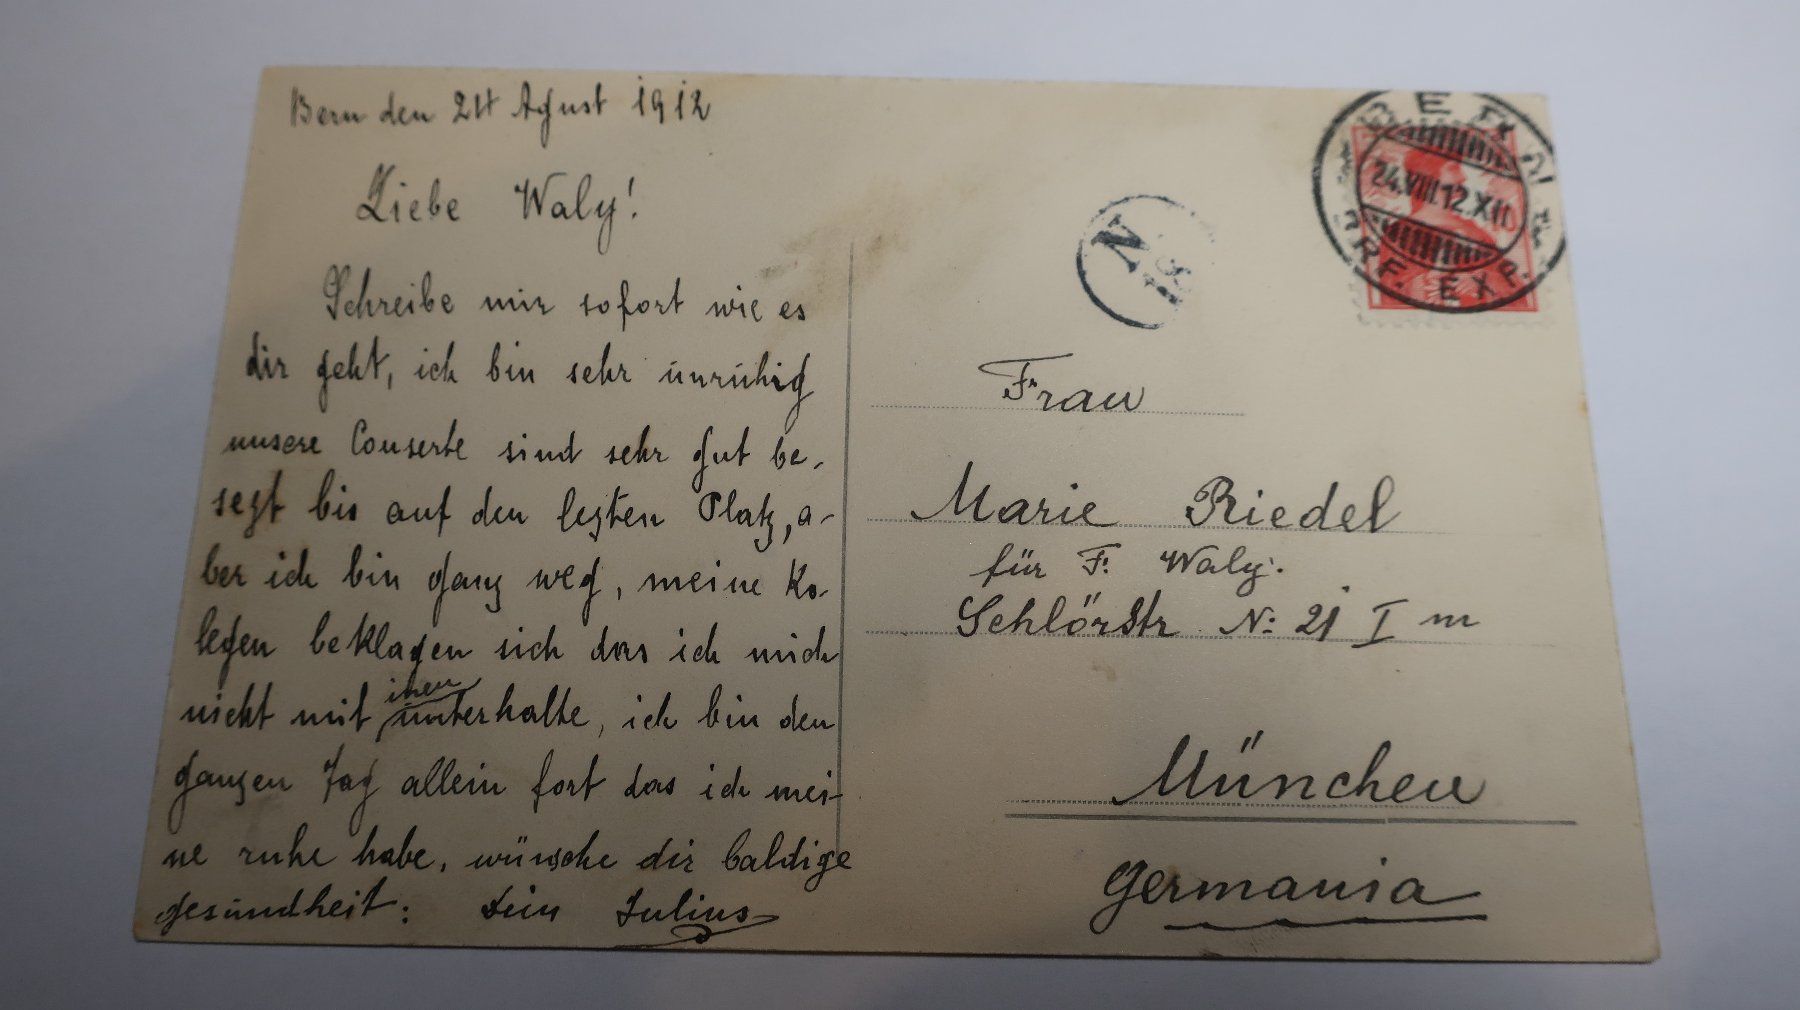 Bern den 24 Agust 1912
Liebe Waly!
Schreibe mir sofort wie es
dir geht, ich bin sehr unruhig
unsere Conserte sind sehr gut be-
sezt bis auf den lezten Platz, a-
ber ich bin ganz weg, meine Ko-
legen beklagen sich das ich mich
nicht mit ihnen unterhalte, ich bin den
ganzen Tag allein fort das ich mei-
ne ruhe habe, wünsche dir baldige
gesundheit: Dein Julius
24.VIII.12.XII
BRF. EXP.
N
Frau
Marie Riedel
für F. Waly.
Schlörstr No 21 I m
München
Germania